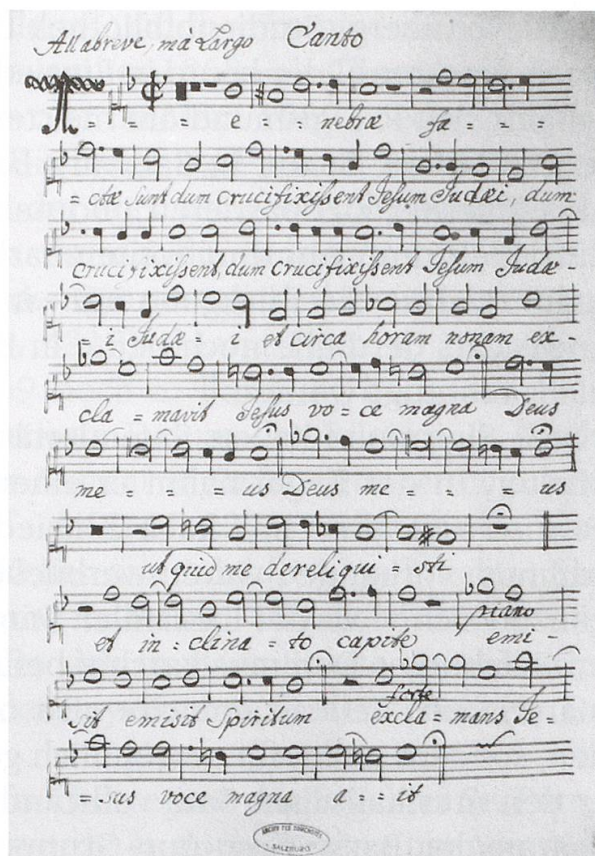 Allabreve, mà Largo Canto
T = = = e = nebræ fa = = =
= ctæ sunt dum crucifixissent Jesum Judæi, dum
crucifixissent, dum crucifixissent Jesum Judæ-
= i Judæ = i et circa horam nonam ex-
cla = mavit Jesus vo = ce magna Deus
me = = = us Deus me = = = us
ut quid me dereliqui = sti
piano
et in = clina = to capite emi-
forte
sit emisit Spiritum excla = mans Je=
= sus voce magna a = = it
ARCHIV DES DOMCHORES
SALZBURG